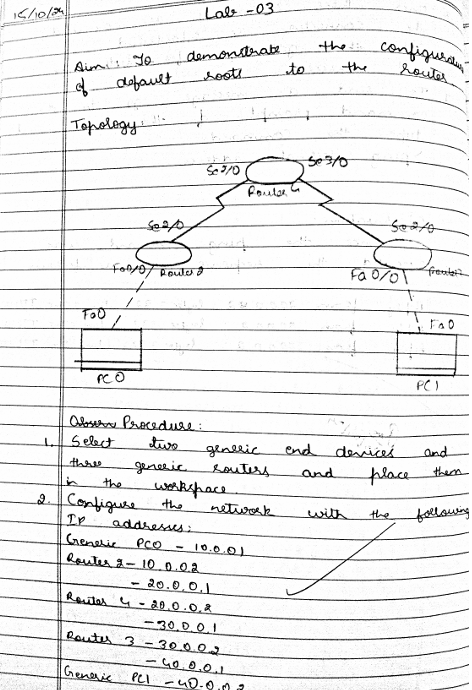 15/10/24
Lab - 03
Aim: To demonstrate the configuration
of default roots to the router
Topology:
Se2/0 Se3/0
Router 4
Se2/0 Se2/0
Fa0/0 Router 2 Fa 0/0
Fa0 Fa0
PC0 PC1
Procedure:
1. Select two generic end devices and
three generic routers and place them
in the workspace
2. Configure the network with the following
IP addresses:
Generic PC0 - 10.0.01
Router 2 - 10.0.0.2
- 20.0.0.1
Router 4 - 20.0.0.2
- 30.0.0.1
Router 3 - 30.0.0.2
- 40.0.0.1
Generic PC1 - 40.0.0.2